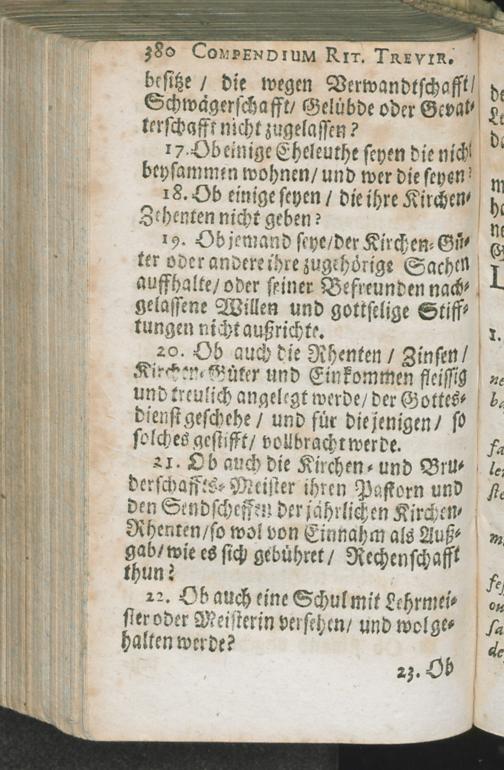 380 COMPENDIUM RIT. TREVIR.
besitze / die wegen Verwandtschafft /
Schwägerschafft / Gelübde oder Gevat-
terschafft nicht zugelassen?
17. Ob einige Eheleuthe seyen die nicht
beysammen wohnen / und wer die seyen?
18. Ob einige seyen / die ihre Kirchen-
Zehenten nicht geben?
19. Ob jemand seye / der Kirchen-Gü-
ter oder andere ihre zugehörige Sachen
auffhalte / oder seiner Befreunden nach-
gelassene Willen und gottselige Stiff-
tungen nicht außrichte.
20. Ob auch die Rhenten / Zinsen /
Kirchen-Güter und Einkommen fleissig
und treulich angelegt werde / der Gottes-
dienst geschehe / und für diejenigen / so
solches gestifft / vollbracht werde.
21. Ob auch die Kirchen- und Bru-
derschaffts-Meister ihren Pastorn und
den Sendscheffen der jährlichen Kirchen-
Rhenten / so wol von Einnahm als Auß-
gab / wie es sich gebühret / Rechenschafft
thun?
22. Ob auch eine Schul mit Lehrmei-
ster oder Meisterin versehen / und wol ge-
halten werde?
23. Ob